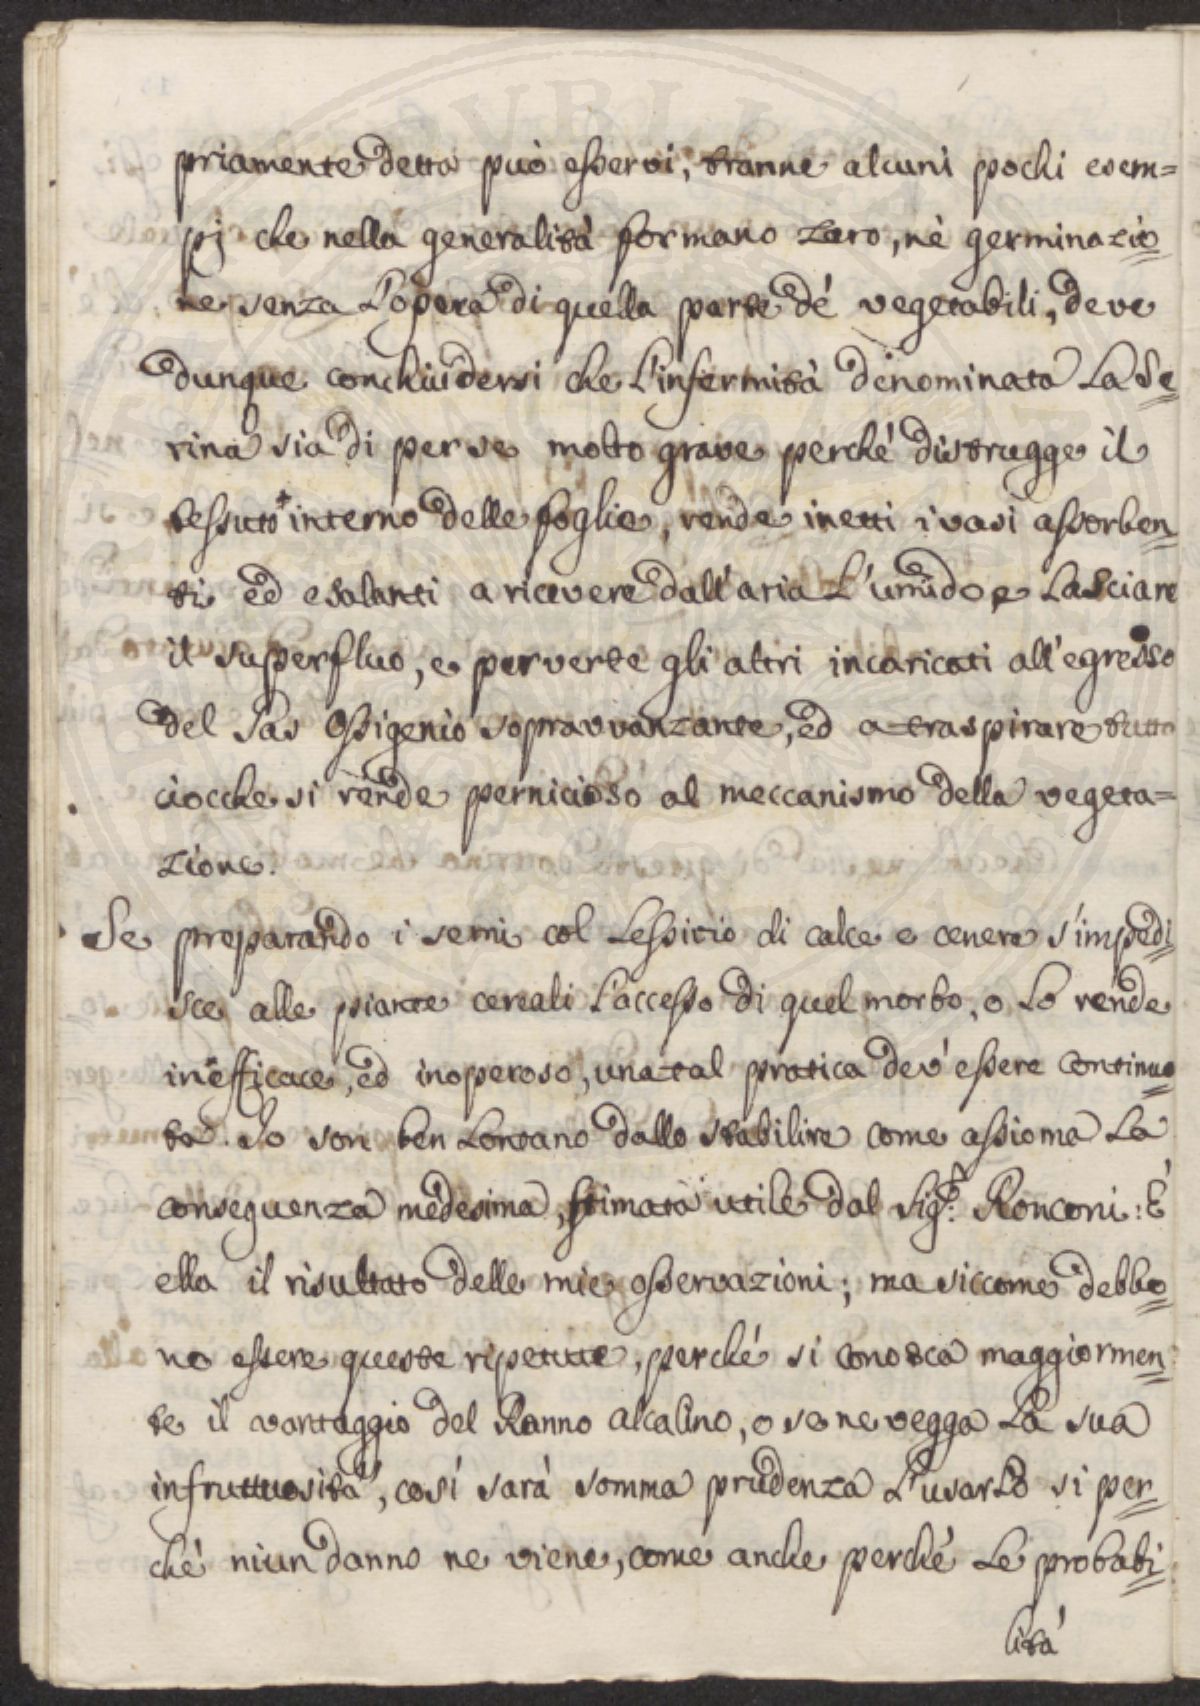 priamente detta può esservi, tranne alcuni pochi esem=
pj che nella generalità formano zero, nè germinazio=
ne senza l'opera di quella parte dé vegetabili, deve
dunque conchiudersi che l'infermità denominata la Se=
rina sia di per se molto grave perché distrugge il
tessuto interno delle foglie, rende inetti i vasi assorben=
ti ed esalanti a ricevere dall'aria l'umido e lasciare
il superfluo, e perverte gli altri incaricati all'egresso
del Gas Ossigenio sopravvanzante, ed a traspirare tutto
ciocche si rende pernicioso al meccanismo della vegeta=
zione.
Se preparando i semi col Lessivio di calce e cenere s'impedi=
sce alle piante cereali l'accesso di quel morbo, o lo rende
inefficace, ed inoperoso, una tal pratica dev'essere continua=
ta. Io son ben lontano dallo stabilire come assioma la
conseguenza medesima, stimata utile dal Sig.r Ronconi: È
ella il risultato delle mie osservazioni; ma siccome debbo=
no essere queste ripetute, perché si conosca maggiormen=
te il vantaggio del Ranno alcalino, o se ne vegga la sua
infruttuosità, così sarà somma prudenza l'usarlo si per=
ché niun danno ne viene, come anche perché le probabi=
lità